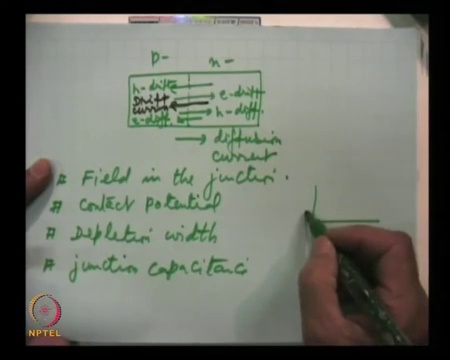 p- n-
h-drift
Drift e-drift
current h-diff.
e-diff.
diffusion
current
# Field in the junction.
# Contact potential
# Depletion width
# junction capacitanc
NPTEL